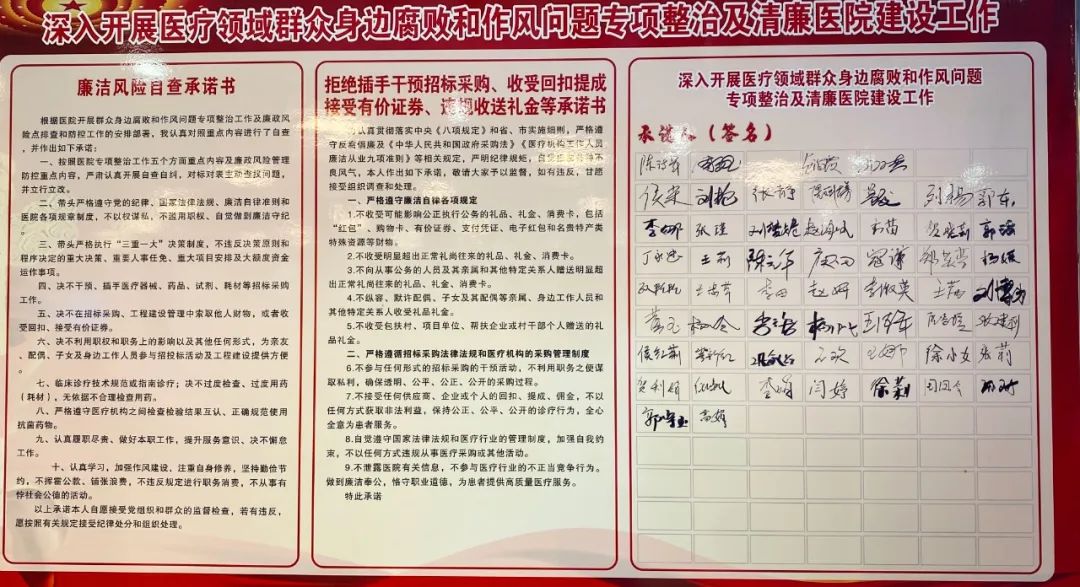 深入开展医疗领域群众身边腐败和作风问题专项整治及清廉医院建设工作
廉洁风险自查承诺书
根据医院开展群众身边腐败和作风问题专项整治工作及廉政风
险点排查和防控工作的安排部署，我认真对照重点内容进行了自查
，并作出如下承诺：
一、按照医院专项整治工作五个方面重点内容及廉政风险管理
防控重点内容，严肃认真开展自查自纠，对标对表主动查摆问题，
并立行立改。
二、带头严格遵守党的纪律、国家法律法规、廉洁自律准则和
医院各项规章制度，不以权谋私、不滥用职权、自觉做到廉洁守纪
。
三、带头严格执行“三重一大”决策制度，不违反决策原则和
程序决定的重大决策、重要人事任免、重大项目安排及大额度资金
运作事项。
四、决不干预、插手医疗器械、药品、试剂、耗材等招标采购
工作。
五、决不在招标采购、工程建设管理中索取他人财物，或者收
受回扣、接受有价证券。
六、决不利用职权和职务上的影响以及其他任何形式，为亲友
、配偶、子女及身边工作人员参与招投标活动及工程建设提供方便
。
七、临床诊疗技术规范或指南诊疗；决不过度检查、过度用药
（耗材），无依据不合理检查用药。
八、严格遵守医疗机构之间检查检验结果互认、正确规范使用
抗菌药物。
九、认真履职尽责、做好本职工作，提升服务意识、决不懈怠
工作。
十、认真学习，加强作风建设，注重自身修养，坚持勤俭节
约，不挥霍公款、铺张浪费，不违反规定进行职务消费，不从事有
悖社会公德的活动。
以上承诺本人自愿接受党组织和群众的监督检查，若有违反，
愿按照有关规定接受纪律处分和组织处理。
拒绝插手干预招标采购、收受回扣提成
接受有价证券、违规收送礼金等承诺书
为认真贯彻落实中央《八项规定》和省、市实施细则，严格遵
守反商倡廉及《中华人民共和国政府采购法》《医疗机构工作人员
廉洁从业九项准则》等相关规定，严明纪律规矩，自觉抵制各种不
良风气，本人作出如下承诺，敬请大家予以监督，如有违反，甘愿
接受组织调查和处理。
一、严格遵守廉洁自律各项规定
1.不收受可能影响公正执行公务的礼品、礼金、消费卡，包括
“红包”、购物卡、有价证券、支付凭证、电子红包和名贵特产类
特殊资源等财物。
2.不收受明显超出正常礼尚往来的礼品、礼金、消费卡。
3.不向从事公务的人员及其亲属和其他特定关系人赠送明显超
出正常礼尚往来的礼品、礼金、消费卡。
4.不纵容、默许配偶、子女及其配偶等亲属、身边工作人员和
其他特定关系人收受礼品礼金。
5.不收受包扶村、项目单位、帮扶企业或村干部个人赠送的礼
品礼金。
二、严格遵循招标采购法律法规和医疗机构的采购管理制度
6.不参与任何形式的招标采购的干预活动，不利用职务之便谋
取私利，确保透明、公平、公正、公开的采购过程。
7.不接受任何供应商、企业或个人的回扣、提成、佣金，不以
任何方式获取非法利益，保持公正、公平、公开的诊疗行为，全心
全意为患者服务。
8.自觉遵守国家法律法规和医疗行业的管理制度，加强自我约
束，不以任何方式违规从事医疗采购或其他活动。
9.不泄露医院有关信息，不参与医疗行业的不正当竞争行为。
做到廉洁奉公，恪守职业道德，为患者提供高质量医疗服务。
特此承诺
深入开展医疗领域群众身边腐败和作风问题
专项整治及清廉医院建设工作
承诺人（签名）
李娜 张瑾
王莉
李田 赵婷 李微英
徐小女 张莉
闫婷 徐莉
高娟